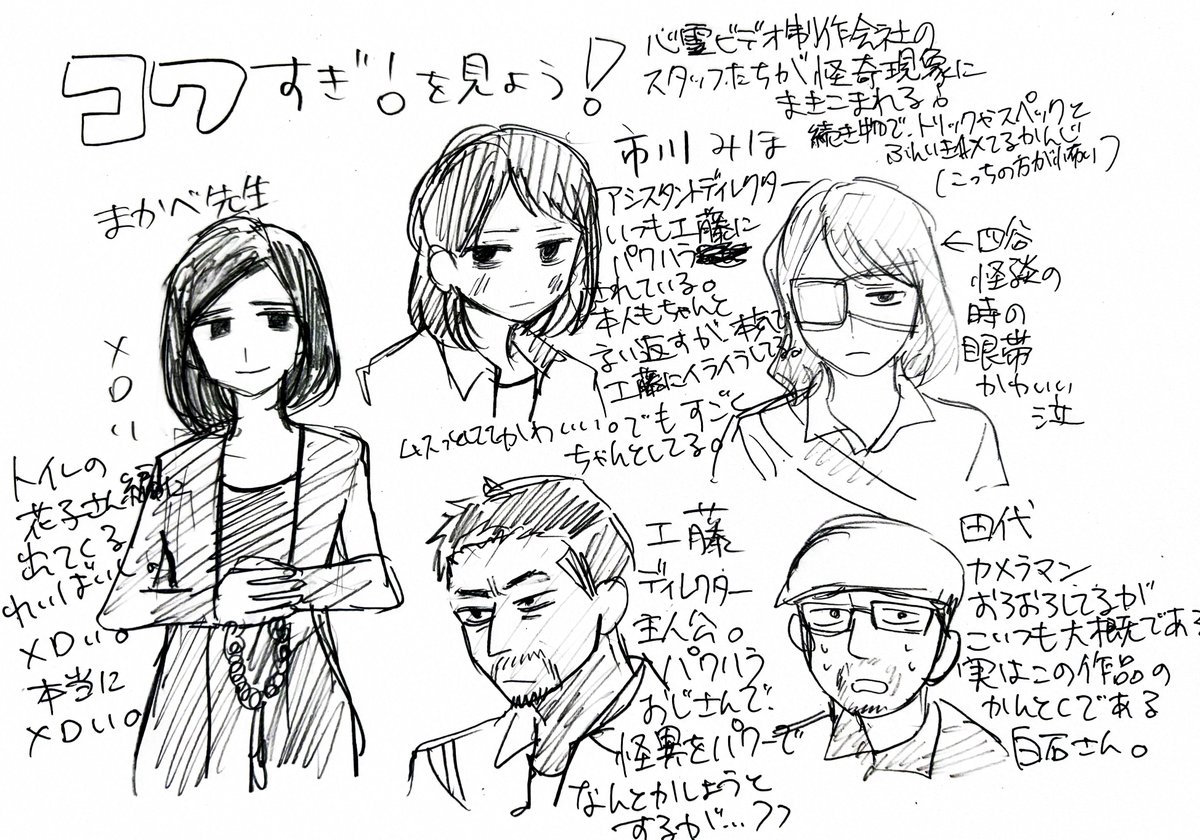 コワすぎ!を見よう!
心霊ビデオ制作会社の
スタッフたちが怪奇現象に
まきこまれる。
続き物で、トリックやスペックと
ふんいき似てるかんじ
(こっちの方が怖い)
まかべ先生
メロい
トイレの
花子さん編に
出てくる
れいばい
メロい。
本当に
メロい。
市川みほ
アシスタントディレクター
いつも工藤に
パワハラ
されている。
本人もちゃんと
言い返すが本気で
工藤にイライラしてる。
ムスっとしててかわいい。でもすごく
ちゃんとしてる。
←四谷
怪談の
時の
眼帯
かわいい
泣
工藤
ディレクター
主人公。
パワハラ
おじさんで、
怪異をパワーで
なんとかしようと
するが…??
田代
カメラマン
おろおろしてるが
こいつも大概である
実はこの作品の
かんとくである
白石さん。